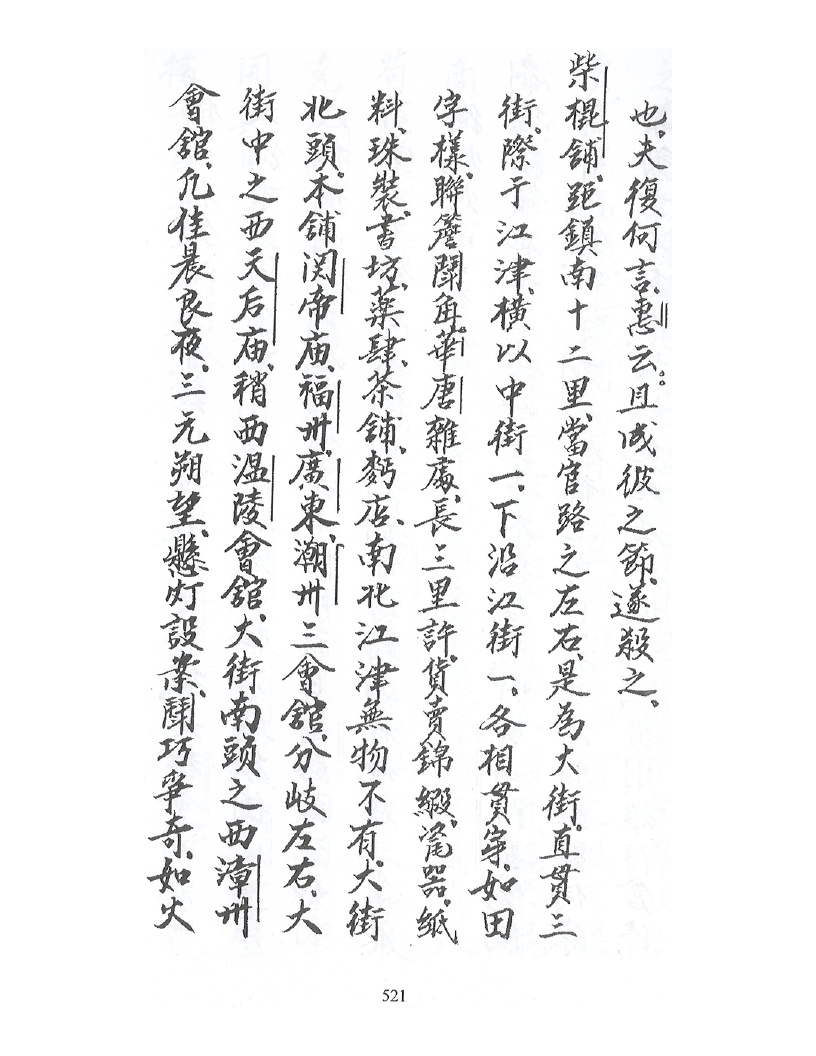 也、夫復何言、惠云。且成彼之節、遂殺之、
柴棍舖、距鎮南十二里、當官路之左右、是為大街、直貫三
街、際于江津、橫以中街一、下沿江街一、各相貫穿、如田
字樣、聯簷鬪角、華唐雜處、長三里許、貨賣錦緞、瓷器、紙
料、珠裝、書坊、藥肆、茶舖、麪店、南北江津無物不有、大街
北頭、本舖関帝庙、福州、廣東、潮州三會舘、分岐左右、大
街中之西天后庙、稍西温陵會舘、大街南頭之西漳州
會舘、凢佳晨良夜、三元朔望、懸灯設案、鬪巧爭奇、如火
521